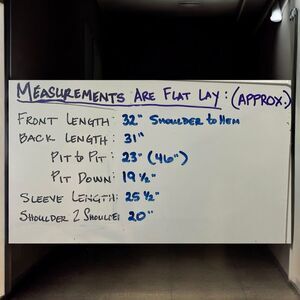 MEASUREMENTS ARE FLAT LAY: (APPROX.)
FRONT LENGTH: 32" SHOULDER to HEM
BACK LENGTH: 31"
PIT to PIT: 23" (46")
PIT DOWN: 19 ½"
SLEEVE LENGTH: 25 ½"
SHOULDER 2 20"